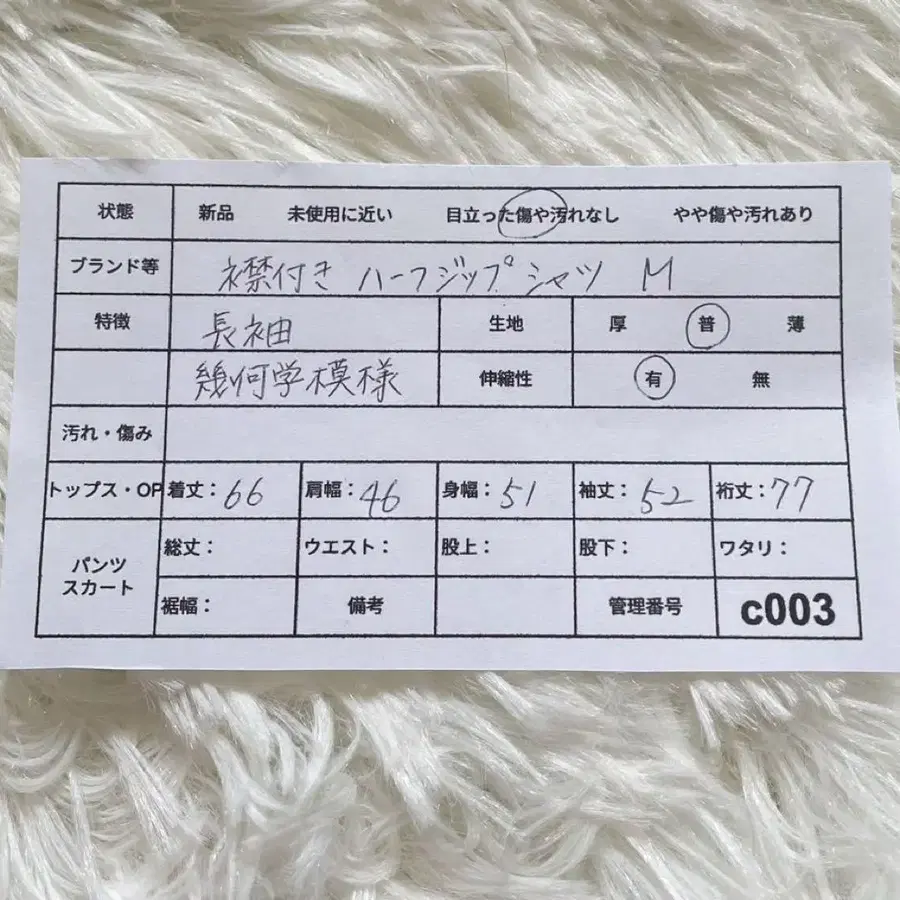 状態 新品 未使用に近い 目立った傷や汚れなし やや傷や汚れあり
ブランド等 襟付き ハーフジップシャツ M
特徴 長袖 生地 厚 普 薄
幾何学模様 伸縮性 有 無
汚れ・傷み
トップス・OP 着丈：66 肩幅：46 身幅：51 袖丈：52 裄丈：77
パンツ スカート 総丈： ウエスト： 股上： 股下： ワタリ：
裾幅： 備考 管理番号 c003